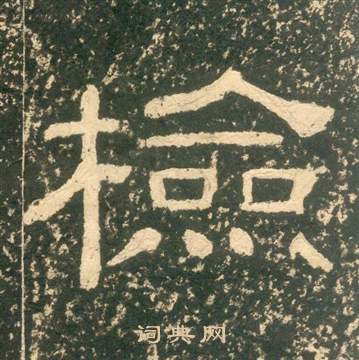 檢
词典网